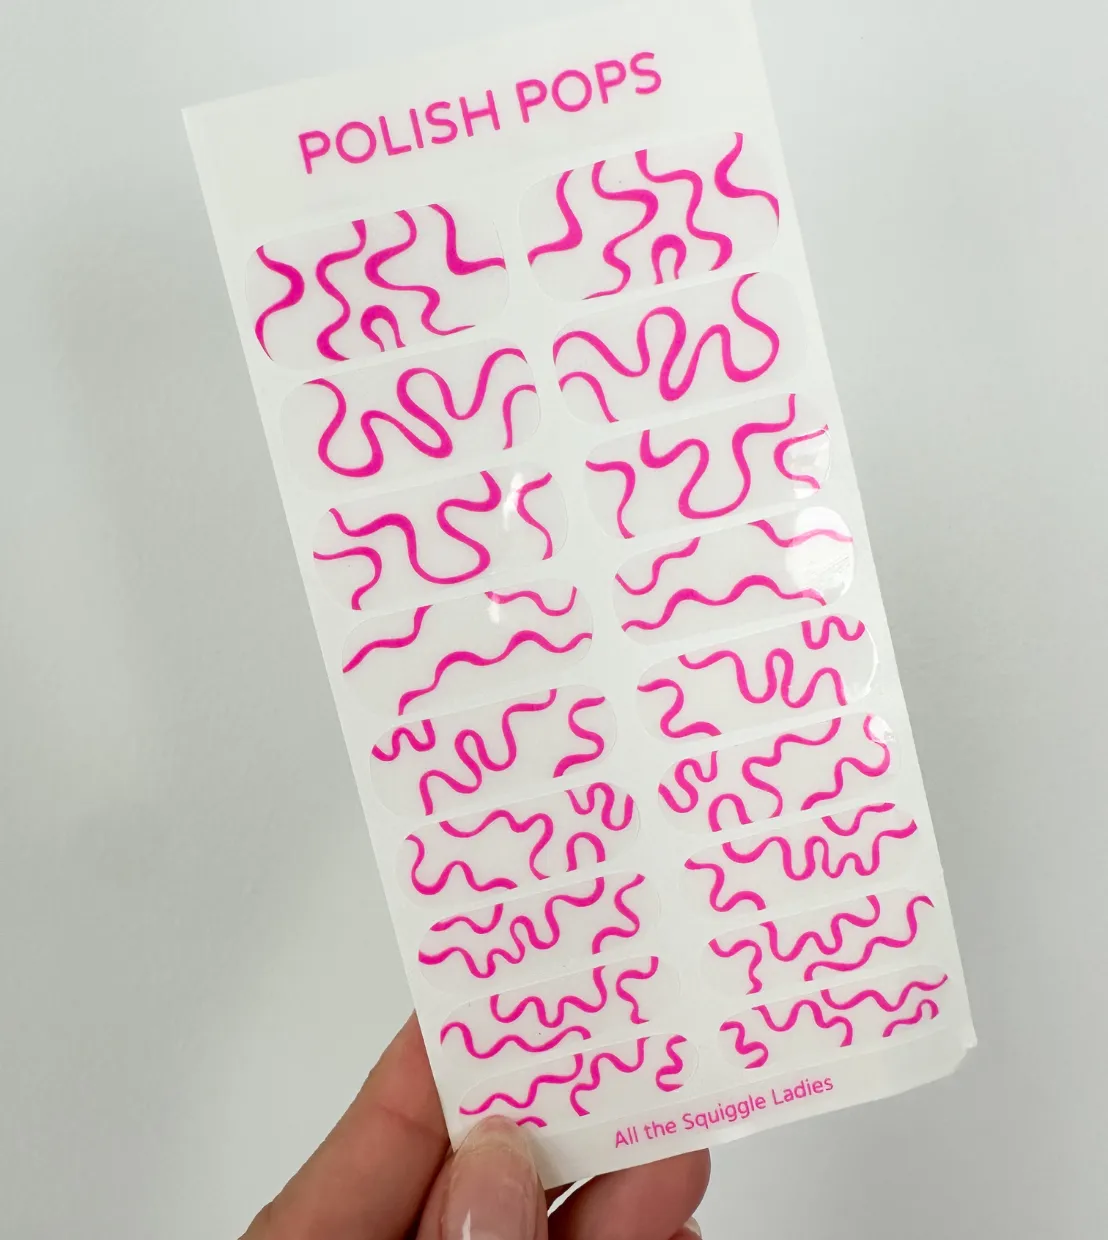 POLISH POPS
All the Squiggle Ladies